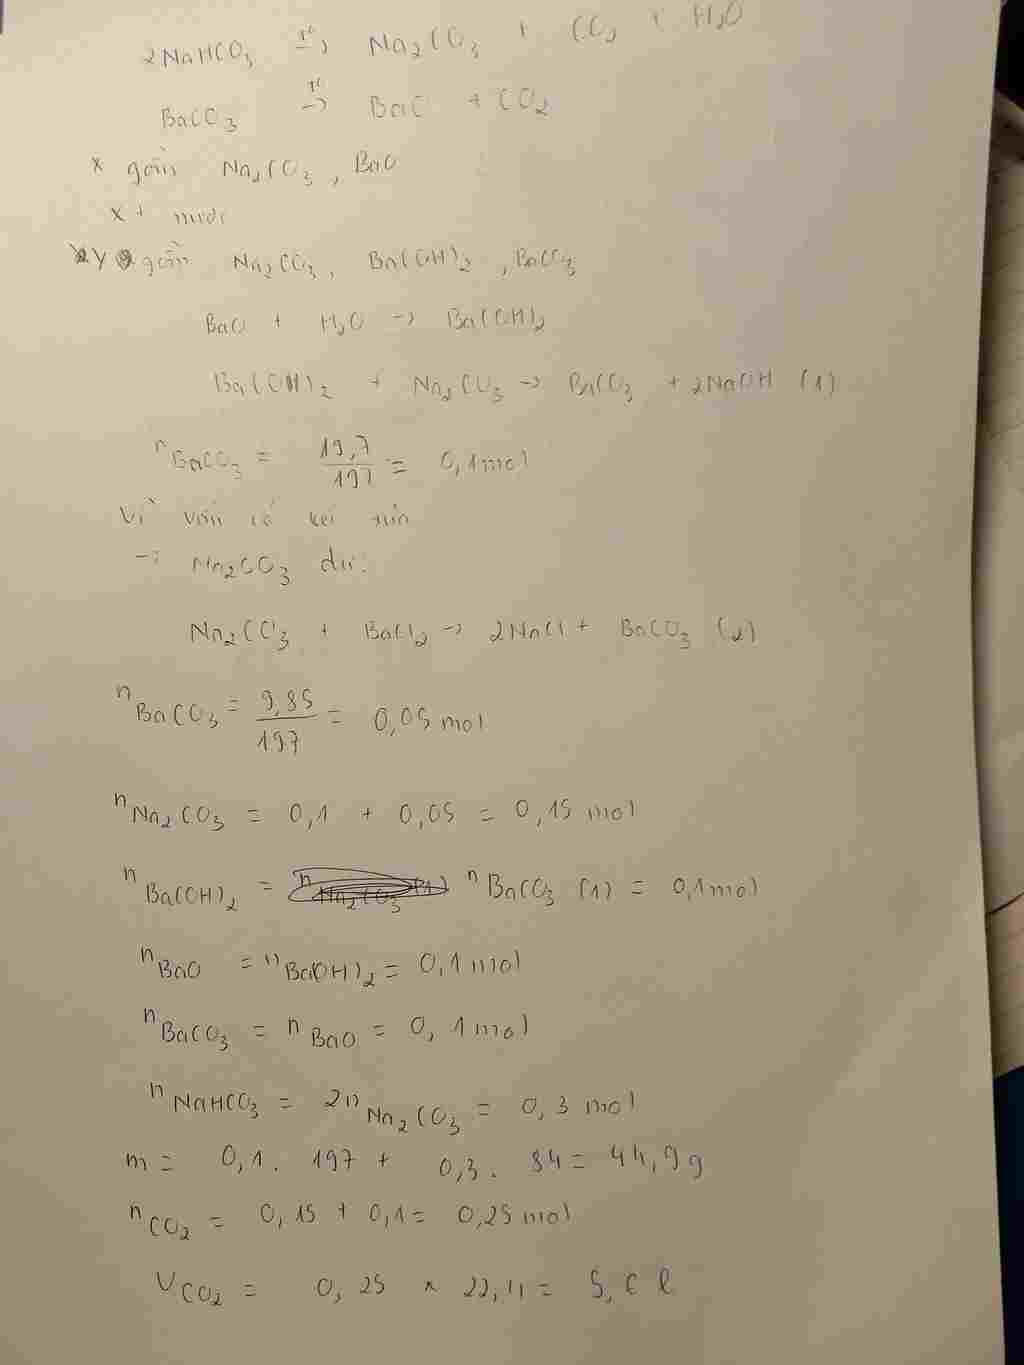 2NaHCO3 t°→ Na2CO3 + CO2 + H2O
BaCO3 t°→ BaO + CO2
X gồm Na2CO3, BaO
X + nước
Y gồm Na2CO3, Ba(OH)2, BaCO3
BaO + H2O → Ba(OH)2
Ba(OH)2 + Na2CO3 → BaCO3 + 2NaOH (1)
nBaCO3 = 19,7/197 = 0,1 mol
Vì vẫn có kết tủa
→ Na2CO3 dư:
Na2CO3 + BaCl2 → 2NaCl + BaCO3 (2)
nBaCO3 = 9,85/197 = 0,05 mol
nNa2CO3 = 0,1 + 0,05 = 0,15 mol
nBa(OH)2 = nBaCO3 (1) = 0,1 mol
nBaO = nBa(OH)2 = 0,1 mol
nBaCO3 = nBaO = 0,1 mol
nNaHCO3 = 2nNa2CO3 = 0,3 mol
m = 0,1. 197 + 0,3. 84 = 44,9g
nCO2 = 0,15 + 0,1 = 0,25 mol
VCO2 = 0,25 × 22,4 = 5,6 l